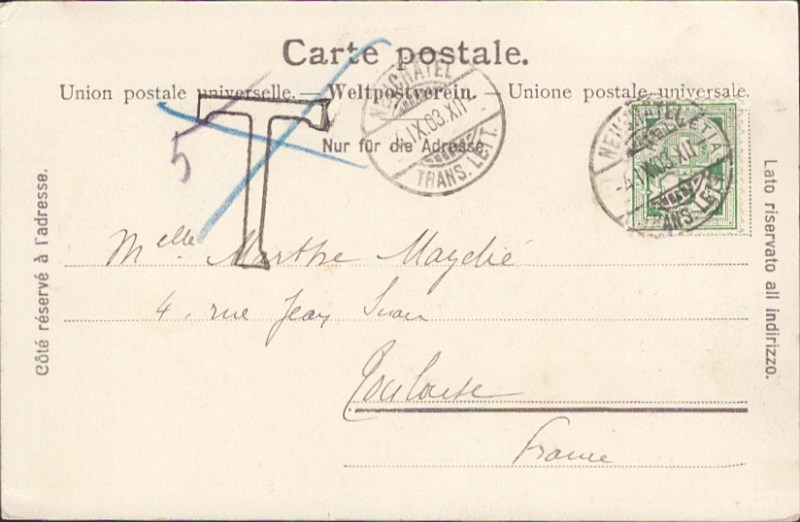 Carte postale.
Union postale universelle. — Weltpostverein. — Unione postale universale.
Nur für die Adresse
NEUCHATEL
-4.IX.03.XII-
TRANS. LETT.
NEUCHATEL
-4.IX.03.XII-
TRANS. LETT.
T
5
Côté réservé à l'adresse.
Lato riservato all indirizzo.
Melle Marthe
4, rue Jean
Toulouse
France